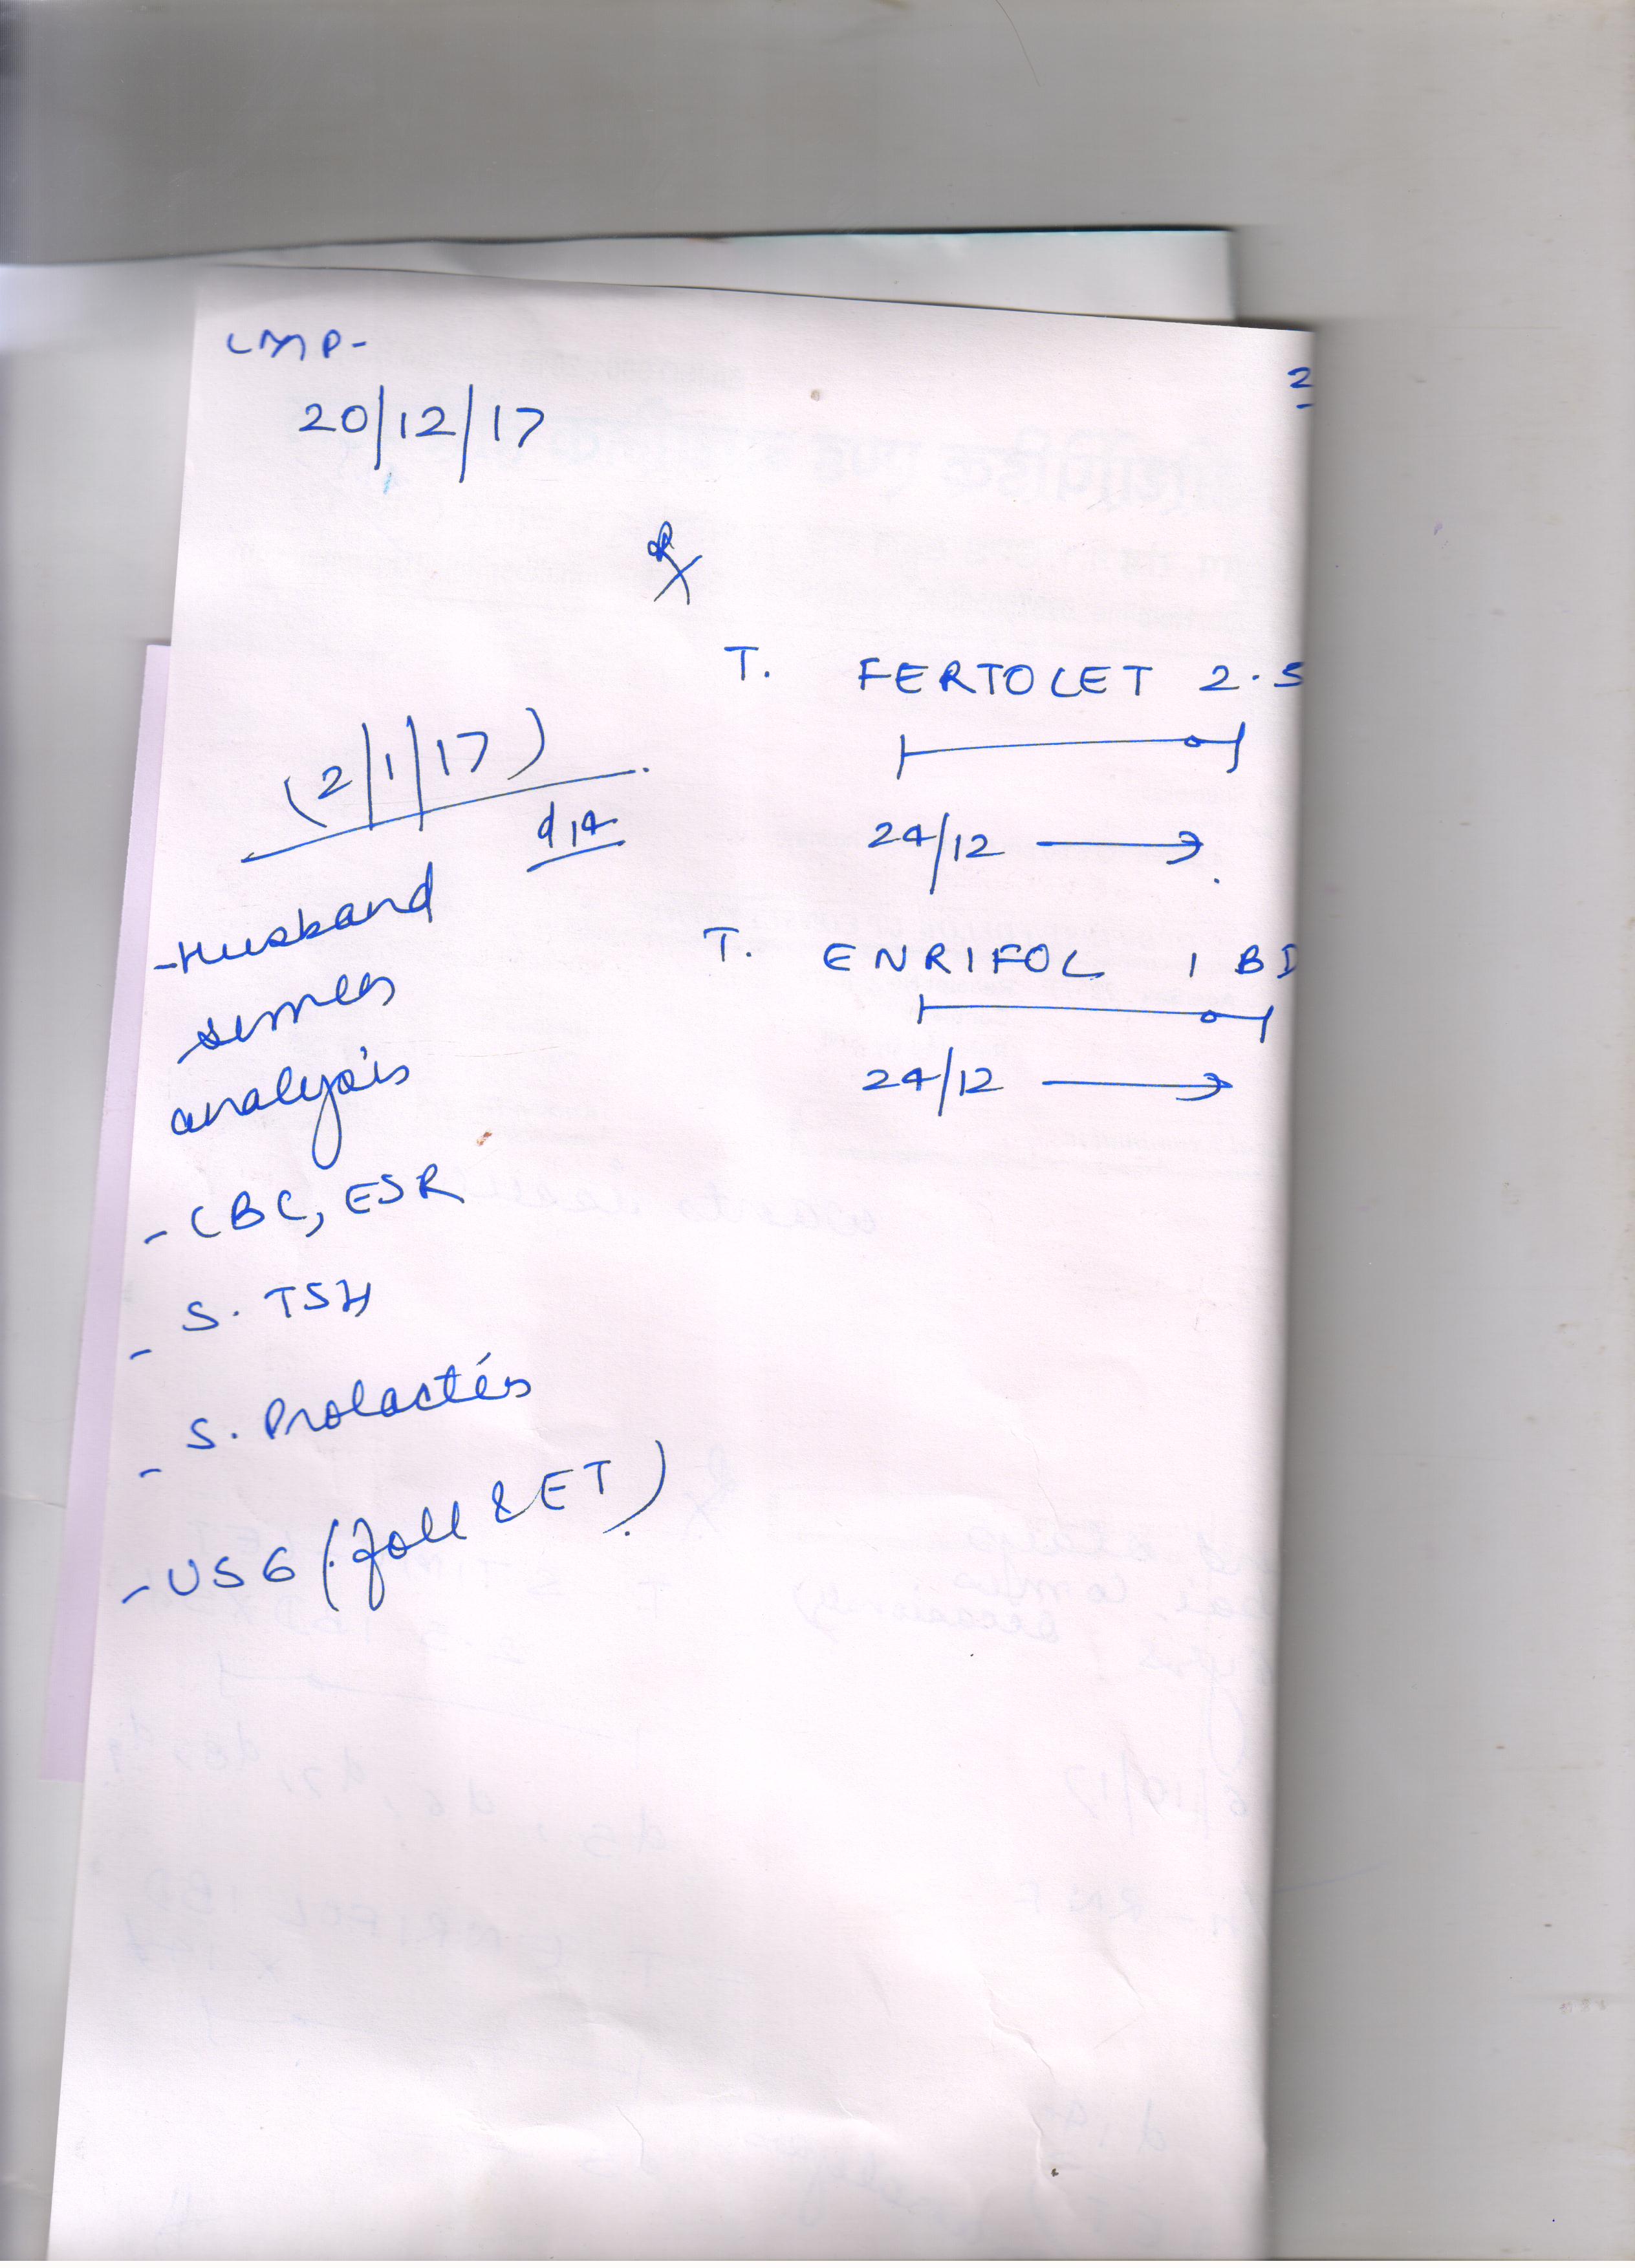 LMP-
20/12/17
2
Rx
T. FERTOLET 2.5
(2/1/17)
d14
24/12 →
-Husband
semen
analysis
T. ENRIFOL 1 BD
24/12 →
- CBC, ESR
- S. TSH
- S. Prolactin
- USG (foll & ET)